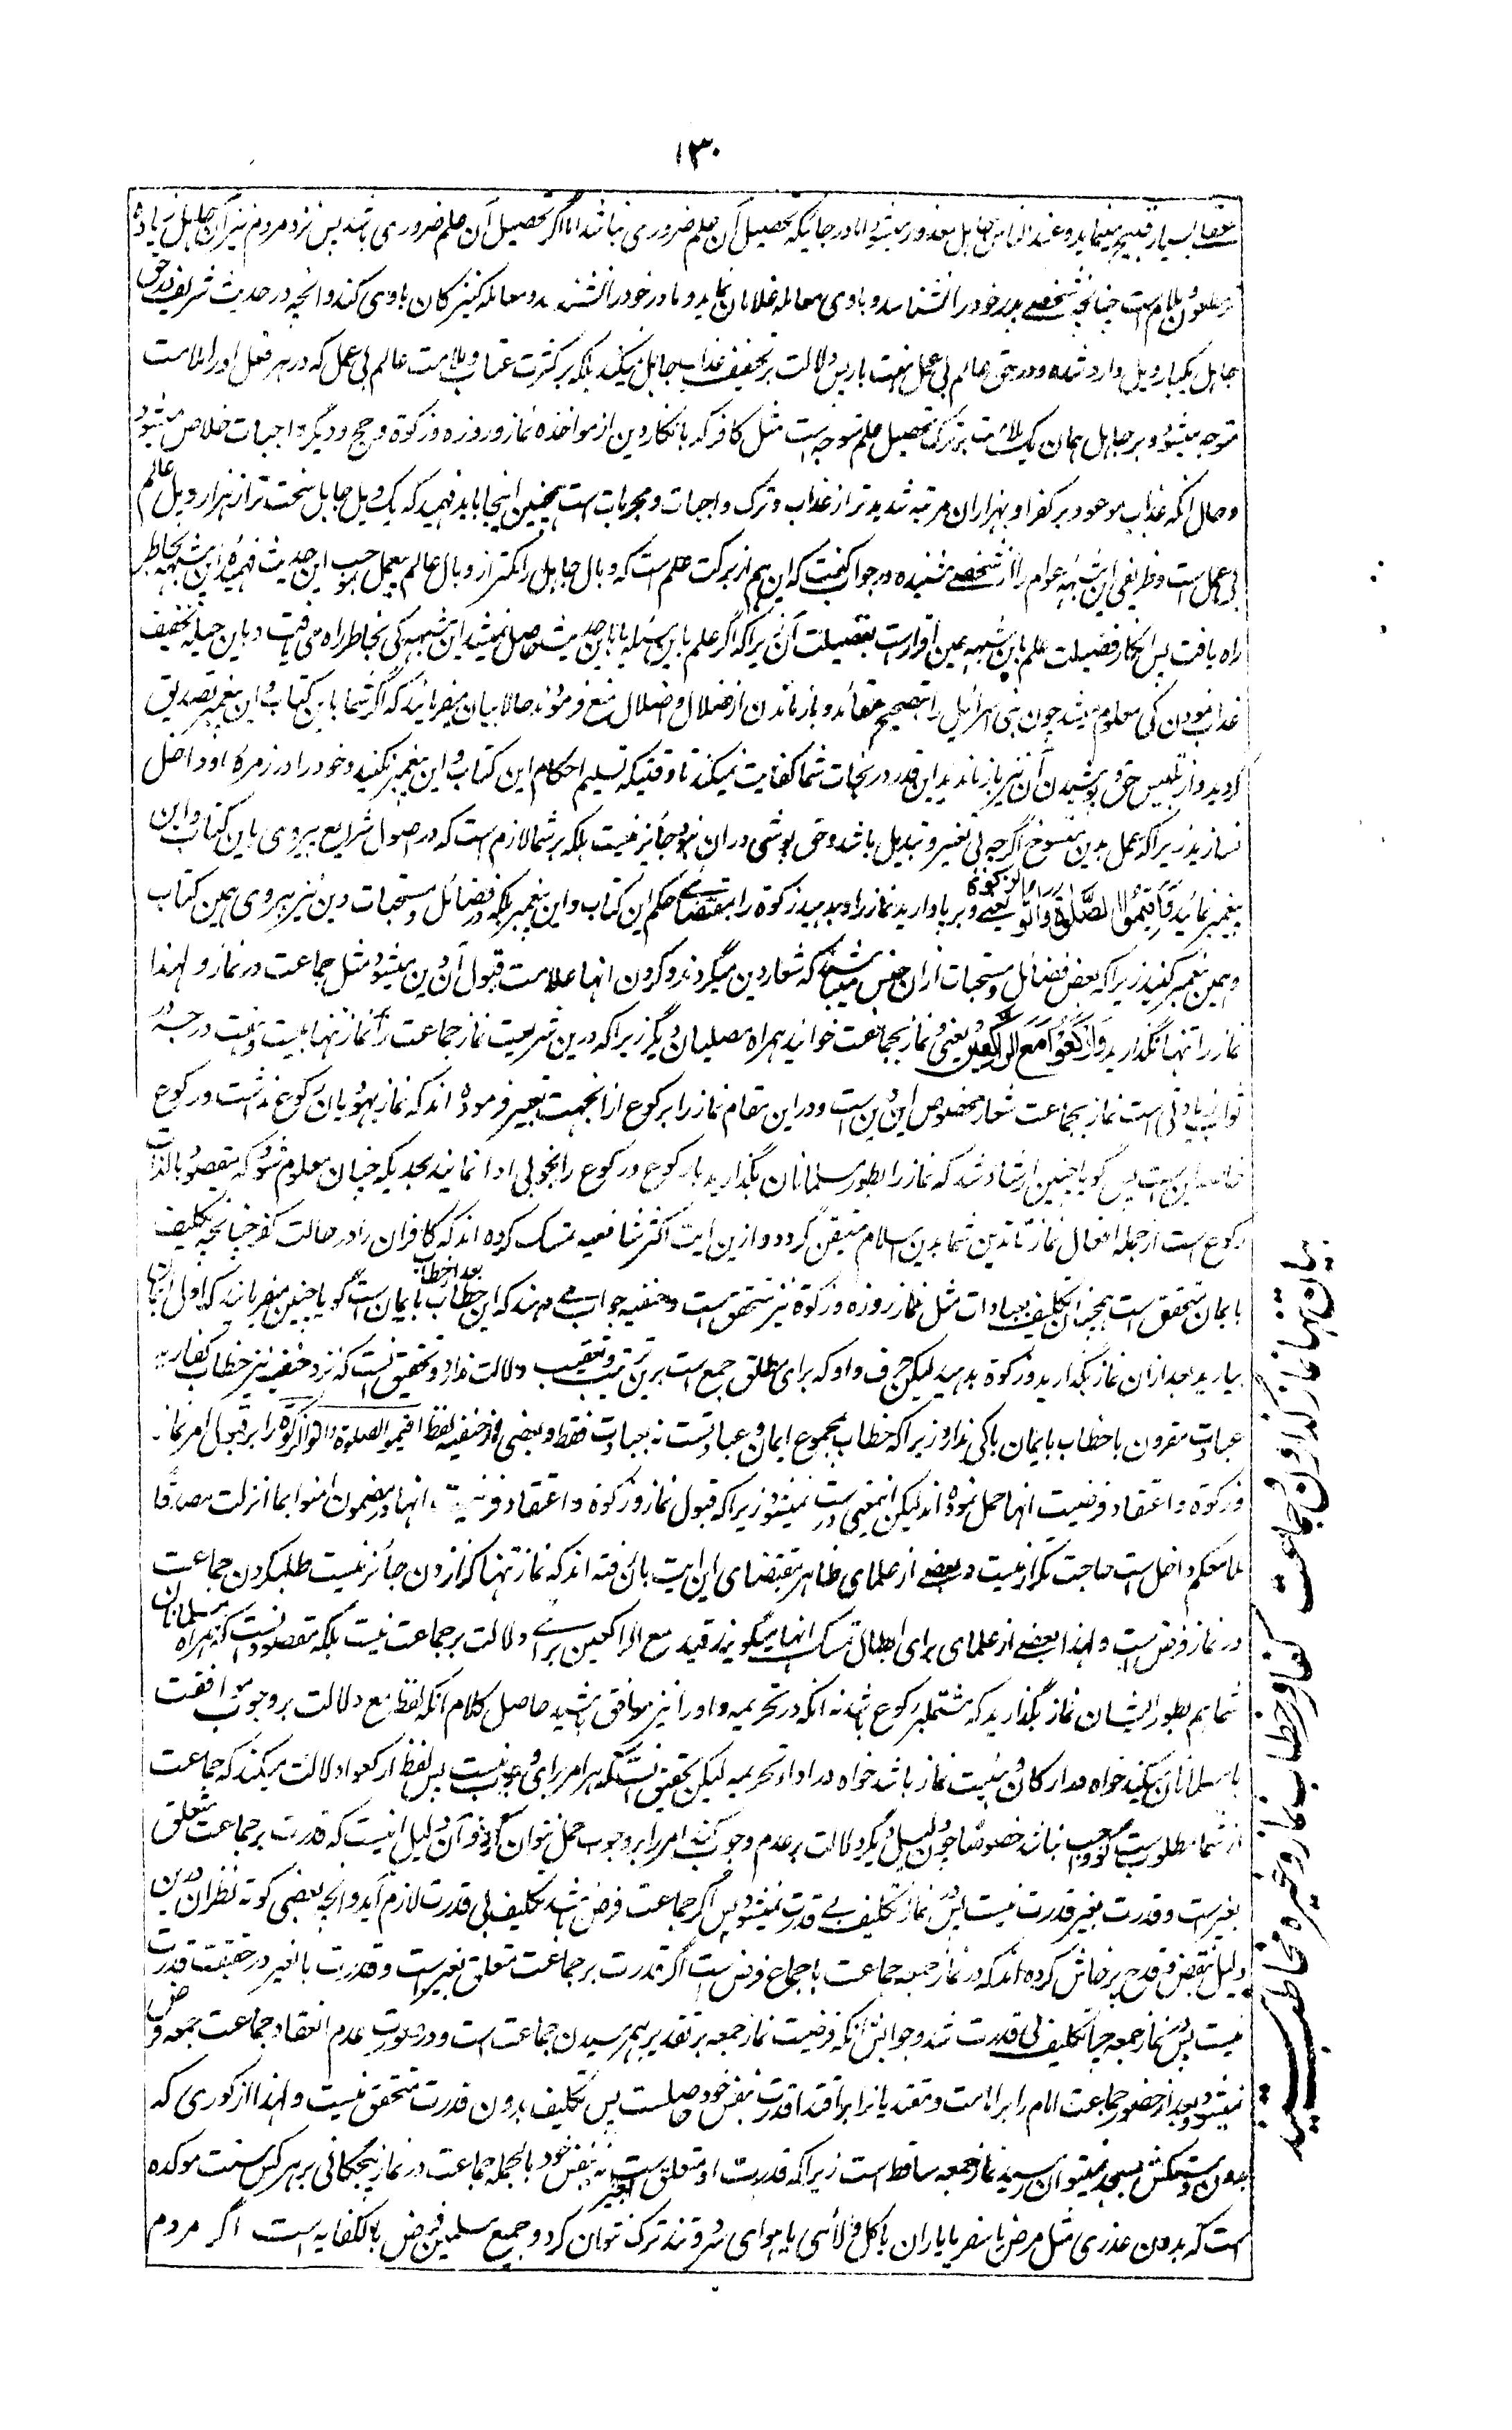 ١٣٠
عقلی بسیار قبیح مینماید و عند الله این جاهل معذور میشود اما در جائیکه تحصیل آن علم ضروری نباشد اما اگر تحصیل آن علم ضروری باشد پس نزد مردم نیز آن جاهل زیاده
تر مطعون و ملام است چنانچه شخصی پدر خود را نشناسد و با وی معامله غلامان نماید و مادر خود را نشناسد و معامله کنیزکان با وی کند و انچه در حدیث شریف در حق
جاهل یکبار ویل وارد شده و در حق عالم بی عمل هفت بار پس دلالت بر تخفیف عذاب جاهل نمیکند بلکه بر کثرت عتاب و ملامت عالم بی عمل که در هر فعل او را ملامت
متوجه میشود و بر جاهل همان یک ملامت بر ترک تحصیل علم متوجه است مثل کافر که بانکار دین از مواخذه نماز و روزه و زکوة و حج و دیگر واجبات خلاص میشود
و حال انکه عذاب موعود بر کفر او بهزاران مرتبه شدیدتر از عذاب و ترک واجبات و محرمات است همچنین اینجا باید فهمید که یک ویل جاهل سخت تر از هزار ویل عالم
بی عمل است و ظریفی این شبهه عوام را از شخصی شنیده در جواب گفت که این هم از برکت علم است که وبال جاهل را کمتر از وبال عالم بیعمل بموجب این حدیث فهمیده این شبهه بخاطر
راه یافت پس انکار فضیلت علم باین شبهه عین اقرار است بفضیلت آن زیرا که اگر علم باین مسئله یا باین حدیث حاصل نمیشد این شبهه کی بخاطر راه می یافت و باین حیله تخفیف
عذاب نمودن کی معلوم میشد چون بنی اسرائیل را بتصحیح عقائد و باز ماندن از ضلال و اضلال منع فرمودند حالا بیان میفرمایند که اگر شما باین کتاب و این پیغمبر تصدیق
کردید و از تلبیس حق و پوشیدن آن نیز باز ماندید این قدر در نجات شما کفایت نمیکند تا وقتیکه تسلیم احکام این کتاب و این پیغمبر نکنید و خود را در زمره او داخل
نسازید زیرا که عمل بدین منسوخ اگرچه بی تغییر و تبدیل باشد و حق پوشی در ان نبود جائز نیست بلکه بر شما لازم است که در اصول شرایع پیروی باین کتاب و این
پیغمبر نمائید وَأَقِيمُوا الصَّلٰوةَ وَاٰتُوا الزَّكٰوةَ یعنی و برپا دارید نماز را و بدهید زکوة را بمقتضای حکم این کتاب و این پیغمبر بلکه در فضائل و مستحبات دین نیز پیروی همین کتاب
و همین پیغمبر کنید زیرا که بعض فضائل و مستحبات از ان جنس میباشند که شعار دین میگردند و کردن انها علامت قبول آن دین میشود مثل جماعت در نماز و لهذا
نماز را تنها نگذارید وَارْكَعُوا مَعَ الرّٰكِعِيْنَ یعنی و نماز بجماعت خوانید همراه مصلیان دیگر زیرا که درین شریعت نماز جماعت را بر نماز تنها بیست و هفت درجه در
ثواب زیادتی است نماز بجماعت شعار مخصوص این دین است و در این مقام نماز را برکوع ازانجهت تعبیر فرموده اند که نماز یهودیان رکوع نداشت و رکوع
خاصه این ملت است پس گویا چنین ارشاد شد که نماز را بطور مسلمانان بگذارید با رکوع و رکوع را بخوبی ادا نمایند بحدیکه چنان معلوم شود که مقصود بالذات
رکوع است از جمله افعال نماز تا تدین شما بدین اسلام متیقن گردد و ازین ایت اکثر شافعیه تمسک کرده اند که کافران را در حالت کفر چنانچه تکلیف
بایمان متحقق است همچنان تکلیف بعبادات مثل نماز و روزه و زکوة نیز متحقق است و حنفیه جواب میدهند که این خطاب بعد از خطاب بایمان است گویا چنین میفرمایند که اول ایمان
بیارید بعد ازان نماز بگذارید و زکوة بدهید لیکن حرف واو که برای مطلق جمع است برین ترتیب و تعقیب دلالت ندارد و تحقیق انست که نزد حنفیه نیز خطاب کفار به
عبادت مقرون با خطاب بایمان باکی ندارد زیرا که خطاب بمجموع ایمان و عبادتست نه بعبادت فقط و بعضی از حنفیه لفظ اقیموا الصلوة و اتوا الزکوة را بر قبول امر نماز
و زکوة و اعتقاد فرضیت انها حمل نموده اند لیکن اینمعنی درست نمیشود زیرا که قبول نماز و زکوة و اعتقاد فرضیت انها در مضمون امنوا بما انزلت مصدقا
لما معکم داخل است حاجت تکرار نیست و بعضی از علمای ظاهر بمقتضای این ایت بان رفته اند که نماز تنها گزاردن جائز نیست طلبکردن جماعت
در نماز فرض است و لهذا بعضی از علمای برای ابطال تمسک انها میگویند قید مع الراکعین برای دلالت بر جماعت نیست بلکه مقصود انست که همراه مسلمانان
شما هم بطور ایشان نماز بگذارید که مشتمل بر رکوع باشد نه انکه در تحریمه و ادا نیز موافق باشید حاصل کلام انکه لفظ مع دلالت بر وجوب موافقت
با مسلمانان میکند خواه در ارکان و هیئت نماز باشد خواه در ادا و تحریمه لیکن تحقیق انست که هر امر برای وجوب نیست پس لفظ ارکعوا دلالت میکند که جماعت
از شما مطلوبست گو واجب نباشد خصوصا چون دلیل دیگر دلالت بر عدم وجوب کند امر را بر وجوب حمل نتوان کرد و آن دلیل اینست که قدرت بر جماعت متعلق
بغیر است و قدرت بغیر قدرت نیست پس در نماز تکلیف بے قدرت نمیشود پس اگر جماعت فرض باشد تکلیف بی قدرت لازم آید و انچه بعضی کوته نظران درین
دلیل بنقض و قدح پرخاش کرده اند که در نماز جمعه جماعت باجماع فرض است اگر قدرت بر جماعت متعلق بغیر است و قدرت بالغیر در حقیقت قدرت
نیست پس در نماز جمعه چرا تکلیف بی قدرت شد و جوابش انکه فرضیت نماز جمعه بر تقدیر بهم رسیدن جماعت است و در صورت عدم انعقاد جماعت جمعه فرض
نمیشود و بعد از حضور جماعت امام را بر امامت و مقتدیانرا بر اقتدا قدرت بنفس خود حاصلست پس تکلیف بدون قدرت متحقق نیست و لهذا از کوری که
بدون دستکش بمسجد نمیتوان رسید نماز جمعه ساقط است زیرا که قدرت او متعلق بغیر است نه بنفس خود بالجمله جماعت در نماز پنجگانی بر هر کس سنت موکده
است که بدون عذری مثل مرض یا سفر یا باران یا گل و لای یا هوای سرد و تند ترک نتوان کرد و جمیع مسلمین فرض بالکفایه است اگر مردم
بیان تنها نماز گذاردن و جماعت
کفار خطاب نماز وغیره مخاطب هستند